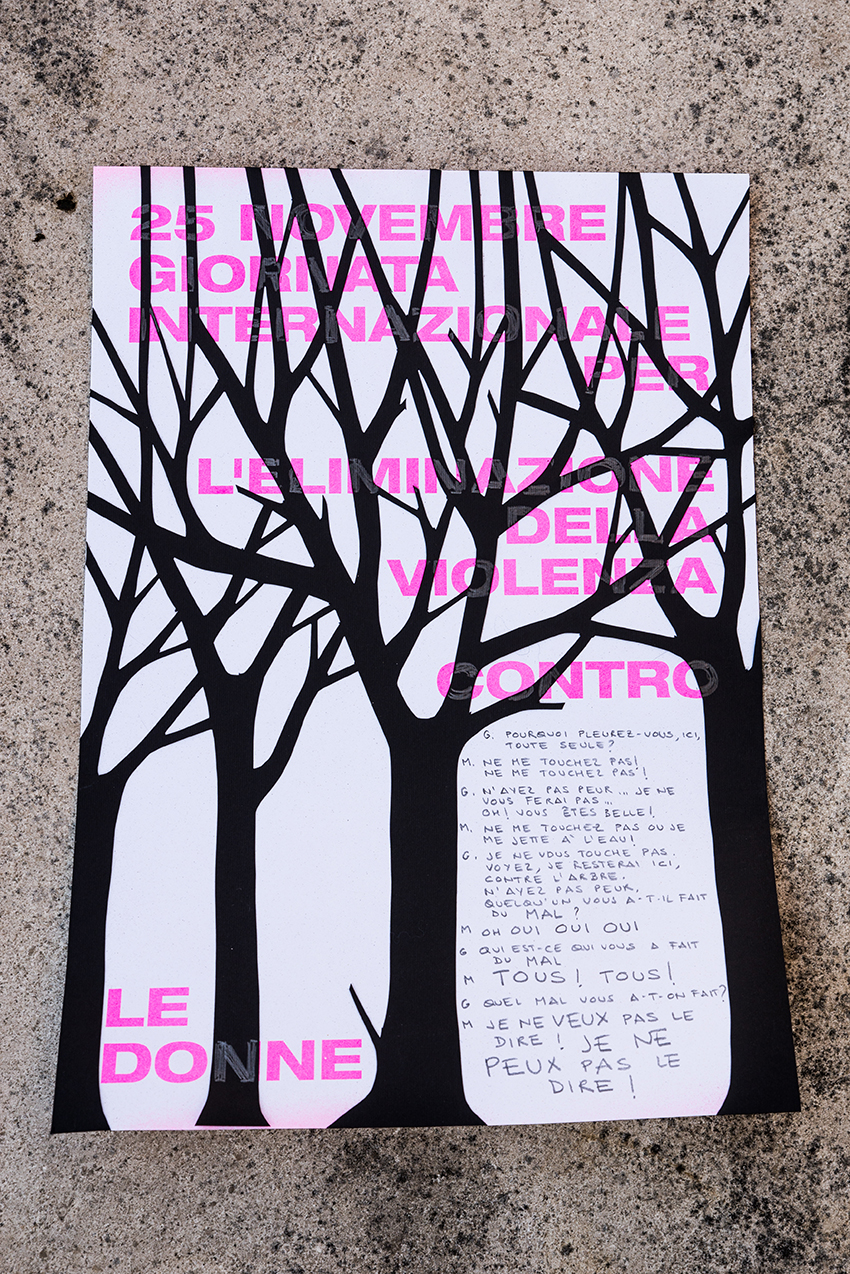 25 NOVEMBRE
GIORNATA
INTERNAZIONALE
PER
L'ELIMINAZIONE
DELLA
VIOLENZA
CONTRO
G. POURQUOI PLEUREZ-VOUS, ICI,
TOUTE SEULE?
M. NE ME TOUCHEZ PAS!
NE ME TOUCHEZ PAS!
G. N'AYEZ PAS PEUR... JE NE
VOUS FERAI PAS...
OH! VOUS ÊTES BELLE!
M. NE ME TOUCHEZ PAS OU JE
ME JETTE À L'EAU!
G. JE NE VOUS TOUCHE PAS.
VOYEZ, JE RESTERAI ICI,
CONTRE L'ARBRE.
N'AYEZ PAS PEUR.
QUELQU'UN VOUS A-T-IL FAIT
DU MAL?
M OH OUI OUI OUI
G QUI EST-CE QUI VOUS A FAIT
DU MAL
M TOUS! TOUS!
G QUEL MAL VOUS A-T-ON FAIT?
M JE NE VEUX PAS LE
DIRE! JE NE
PEUX PAS LE
DIRE!
LE
DONNE